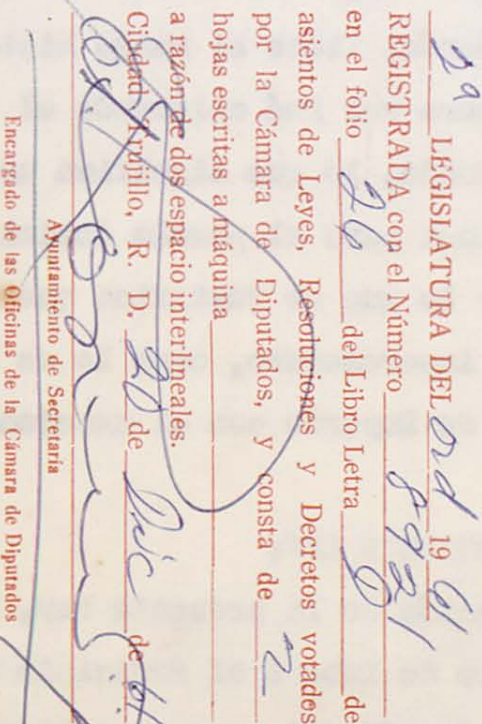 2ª LEGISLATURA DEL Ord 19 61
REGISTRADA con el Número 8921
en el folio 26 del Libro Letra D de
asientos de Leyes, Resoluciones y Decretos votados
por la Cámara de Diputados, y consta de 2
hojas escritas a máquina
a razón de dos espacio interlineales.
Ciudad Trujillo, R. D., 20 de Dic de 61
Ayuntamiento de Secretaria
Encargado de las Oficinas de la Cámara de Diputados